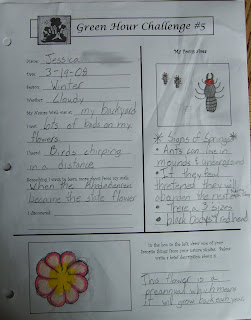 Green Hour Challenge #5
Name: Jessica
Date: 3-19-08
Season: Winter
Weather: Cloudy
My Nature Walk was at my backyard
I saw lots of buds on my
flowers
I heard Birds chirping
in a distance
Something I want to learn more about from my walk:
When the
because the state flower
I discovered:
My Focus Area
*Signs of Spring*
• Ants can live in
mounds & underground
• If they feel
thretened they will
abanden the nest
• There are 3 sizes
• black body & red head
In the box to the left draw one of your
favorite things from your nature studies. Below
write a brief description about it.
This flower is a
preannyual which means
It will grow back each year.